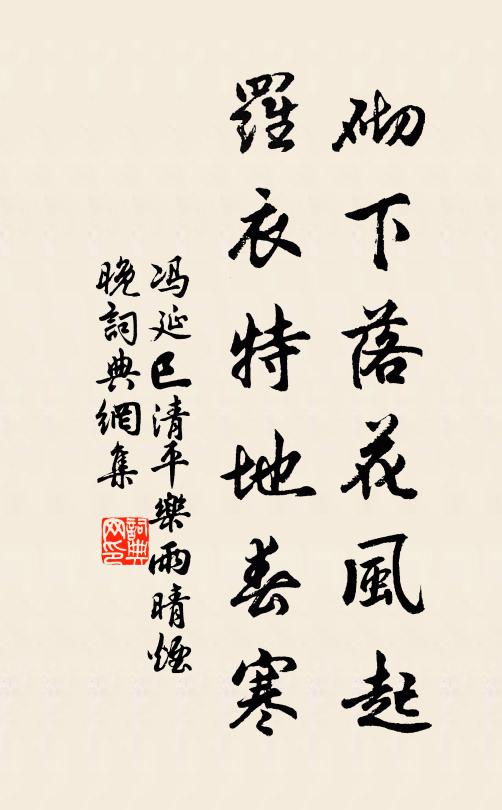 砌下落花風起
羅衣特地春寒
冯延巳清平樂雨晴煙
晚詞典網集
詞典
网印